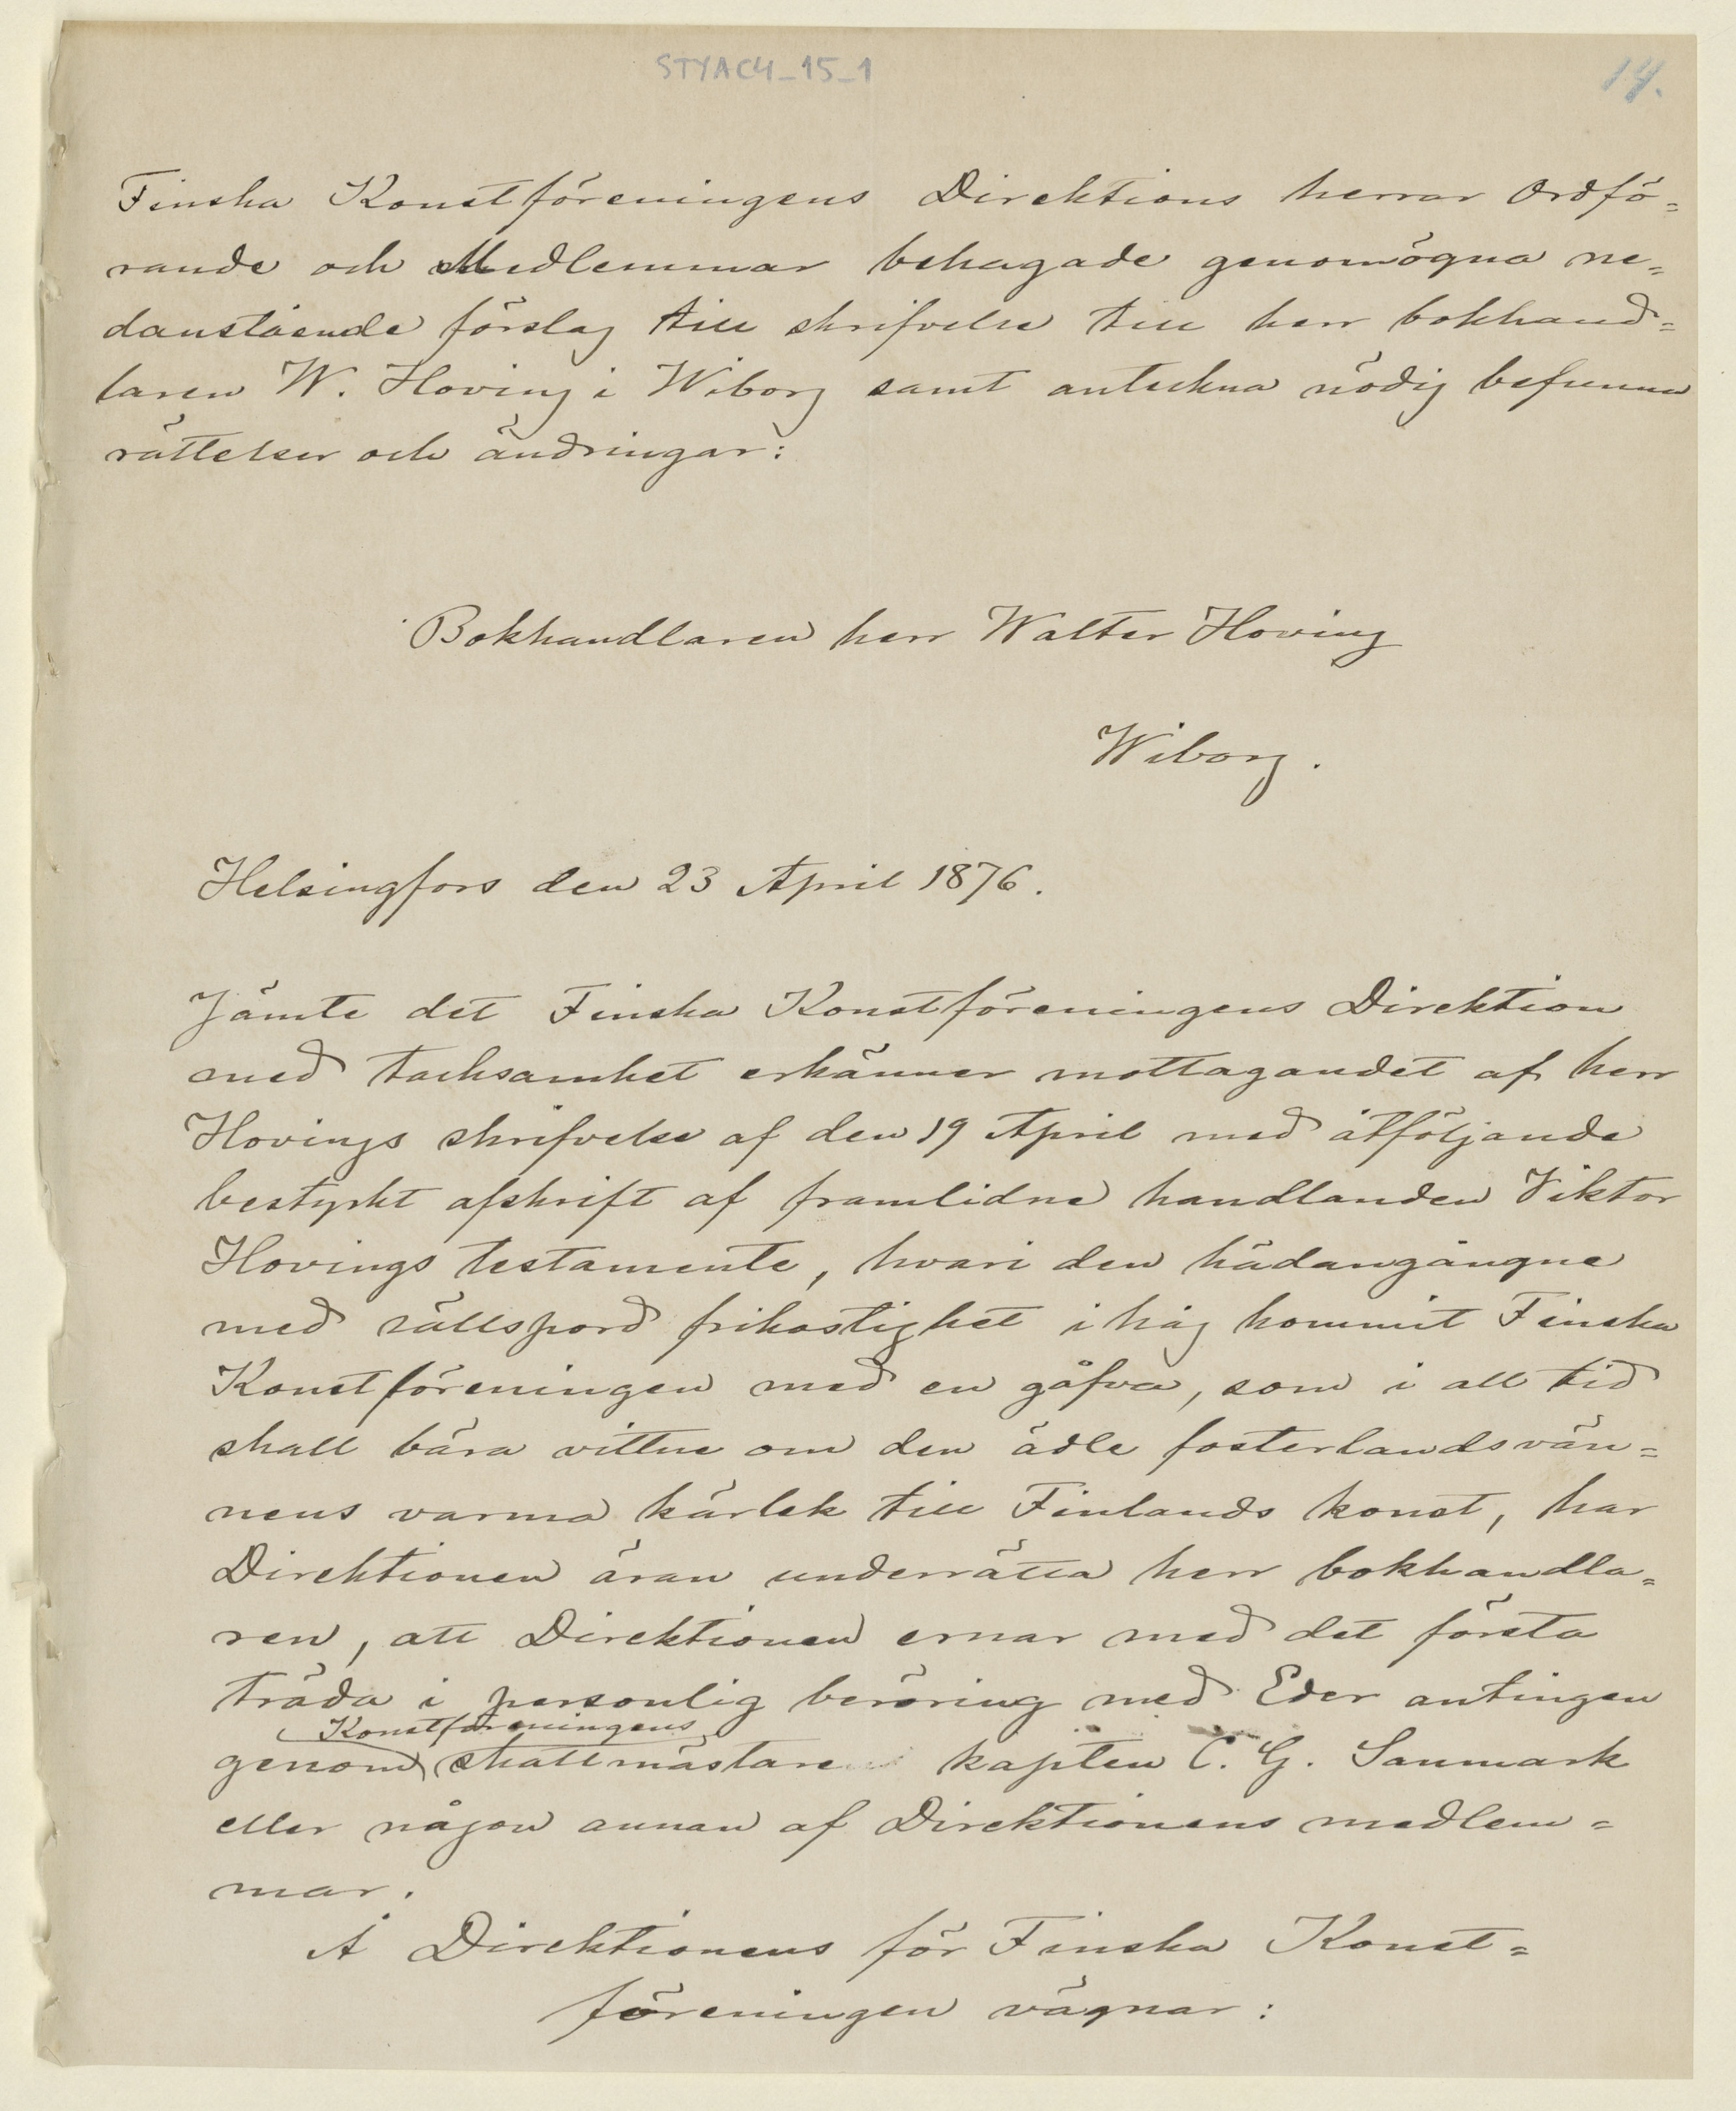 STYAC4_15_1
14.
Finska Konstföreningens Direktions herrar Ordfö=
rande och Medlemmar behagade genomögna ne=
danstående förslag till skrifvelse till herr bokhand=
laren W. Hoving i Wiborg samt anteckna nödig befunna
rättelser och ändringar:
Bokhandlaren herr Walter Hoving
Wiborg.
Helsingfors den 23 April 1876.
Jämte det Finska Konstföreningens Direktion
med tacksamhet erkänner mottagandet af herr
Hovings skrifvelse af den 19 April med åtföljande
bestyrkt afskrift af framlidne handlanden Viktor
Hovings testamente, hvari den hädangångne
med sällspord frikostighet i håg kommit Finska
Konstföreningen med en gåfva, som i all tid
skall bära vittne om den ädle fosterlandsvän=
nens varma kärlek till Finlands konst, har
Direktionen äran underrätta herr bokhandla=
ren, att Direktionen ernar med det första
träda i personlig beröring med Eder antingen
Konstföreningens
genom skattmästare kapten C. G. Sanmark
eller någon annan af Direktionens medlem=
mar.
Å Direktionens för Finska Konst=
föreningen vägnar: